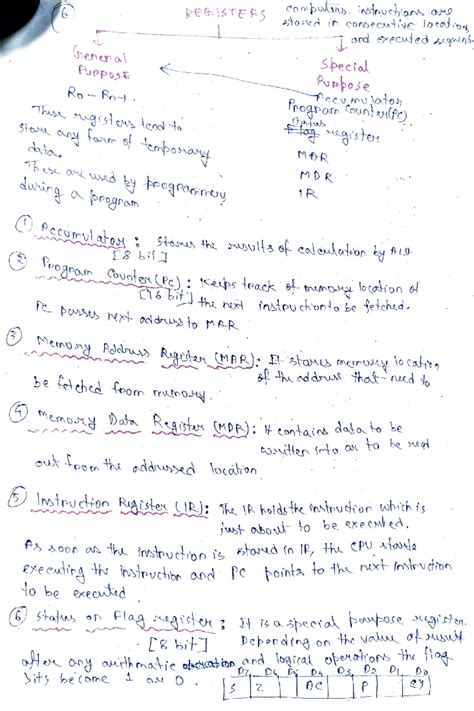 6
REGISTERS
computers. instructions are
stored in consecutive locations
and executed sequent
General
Purpose
Special
Purpose
R0 - Rn-1
Accumulator
Program Counter(PC)
Status
Flag register
MAR
MDR
IR
These registers tend to
store any form of temporary
data.
These are used by programmers
during a program
① Accumulator : Stores the results of calculation by ALU.
[8 bit]
② Program Counter(PC) : Keeps track of memory location of
[16 bit] the next instruction to be fetched.
PC passes next address to MAR
③ Memory Address Register (MAR): It stores memory location
of the address that need to
be fetched from memory.
④ Memory Data Register (MDR): It contains data to be
written into or to be read
out from the addressed location
⑤ Instruction Register (IR): The IR holds the instruction which is
just about to be executed.
As soon as the instruction is stored in IR, the CPU starts
executing the instruction and PC points to the next instruction
to be executed
⑥ Status or Flag register : It is a special purpose register.
[8 bit] Depending on the value of result
after any arithmetic and logical operations the flag
bits become 1 or 0.
D7 D6 D5 D4 D3 D2 D1 D0
S Z AC P CY